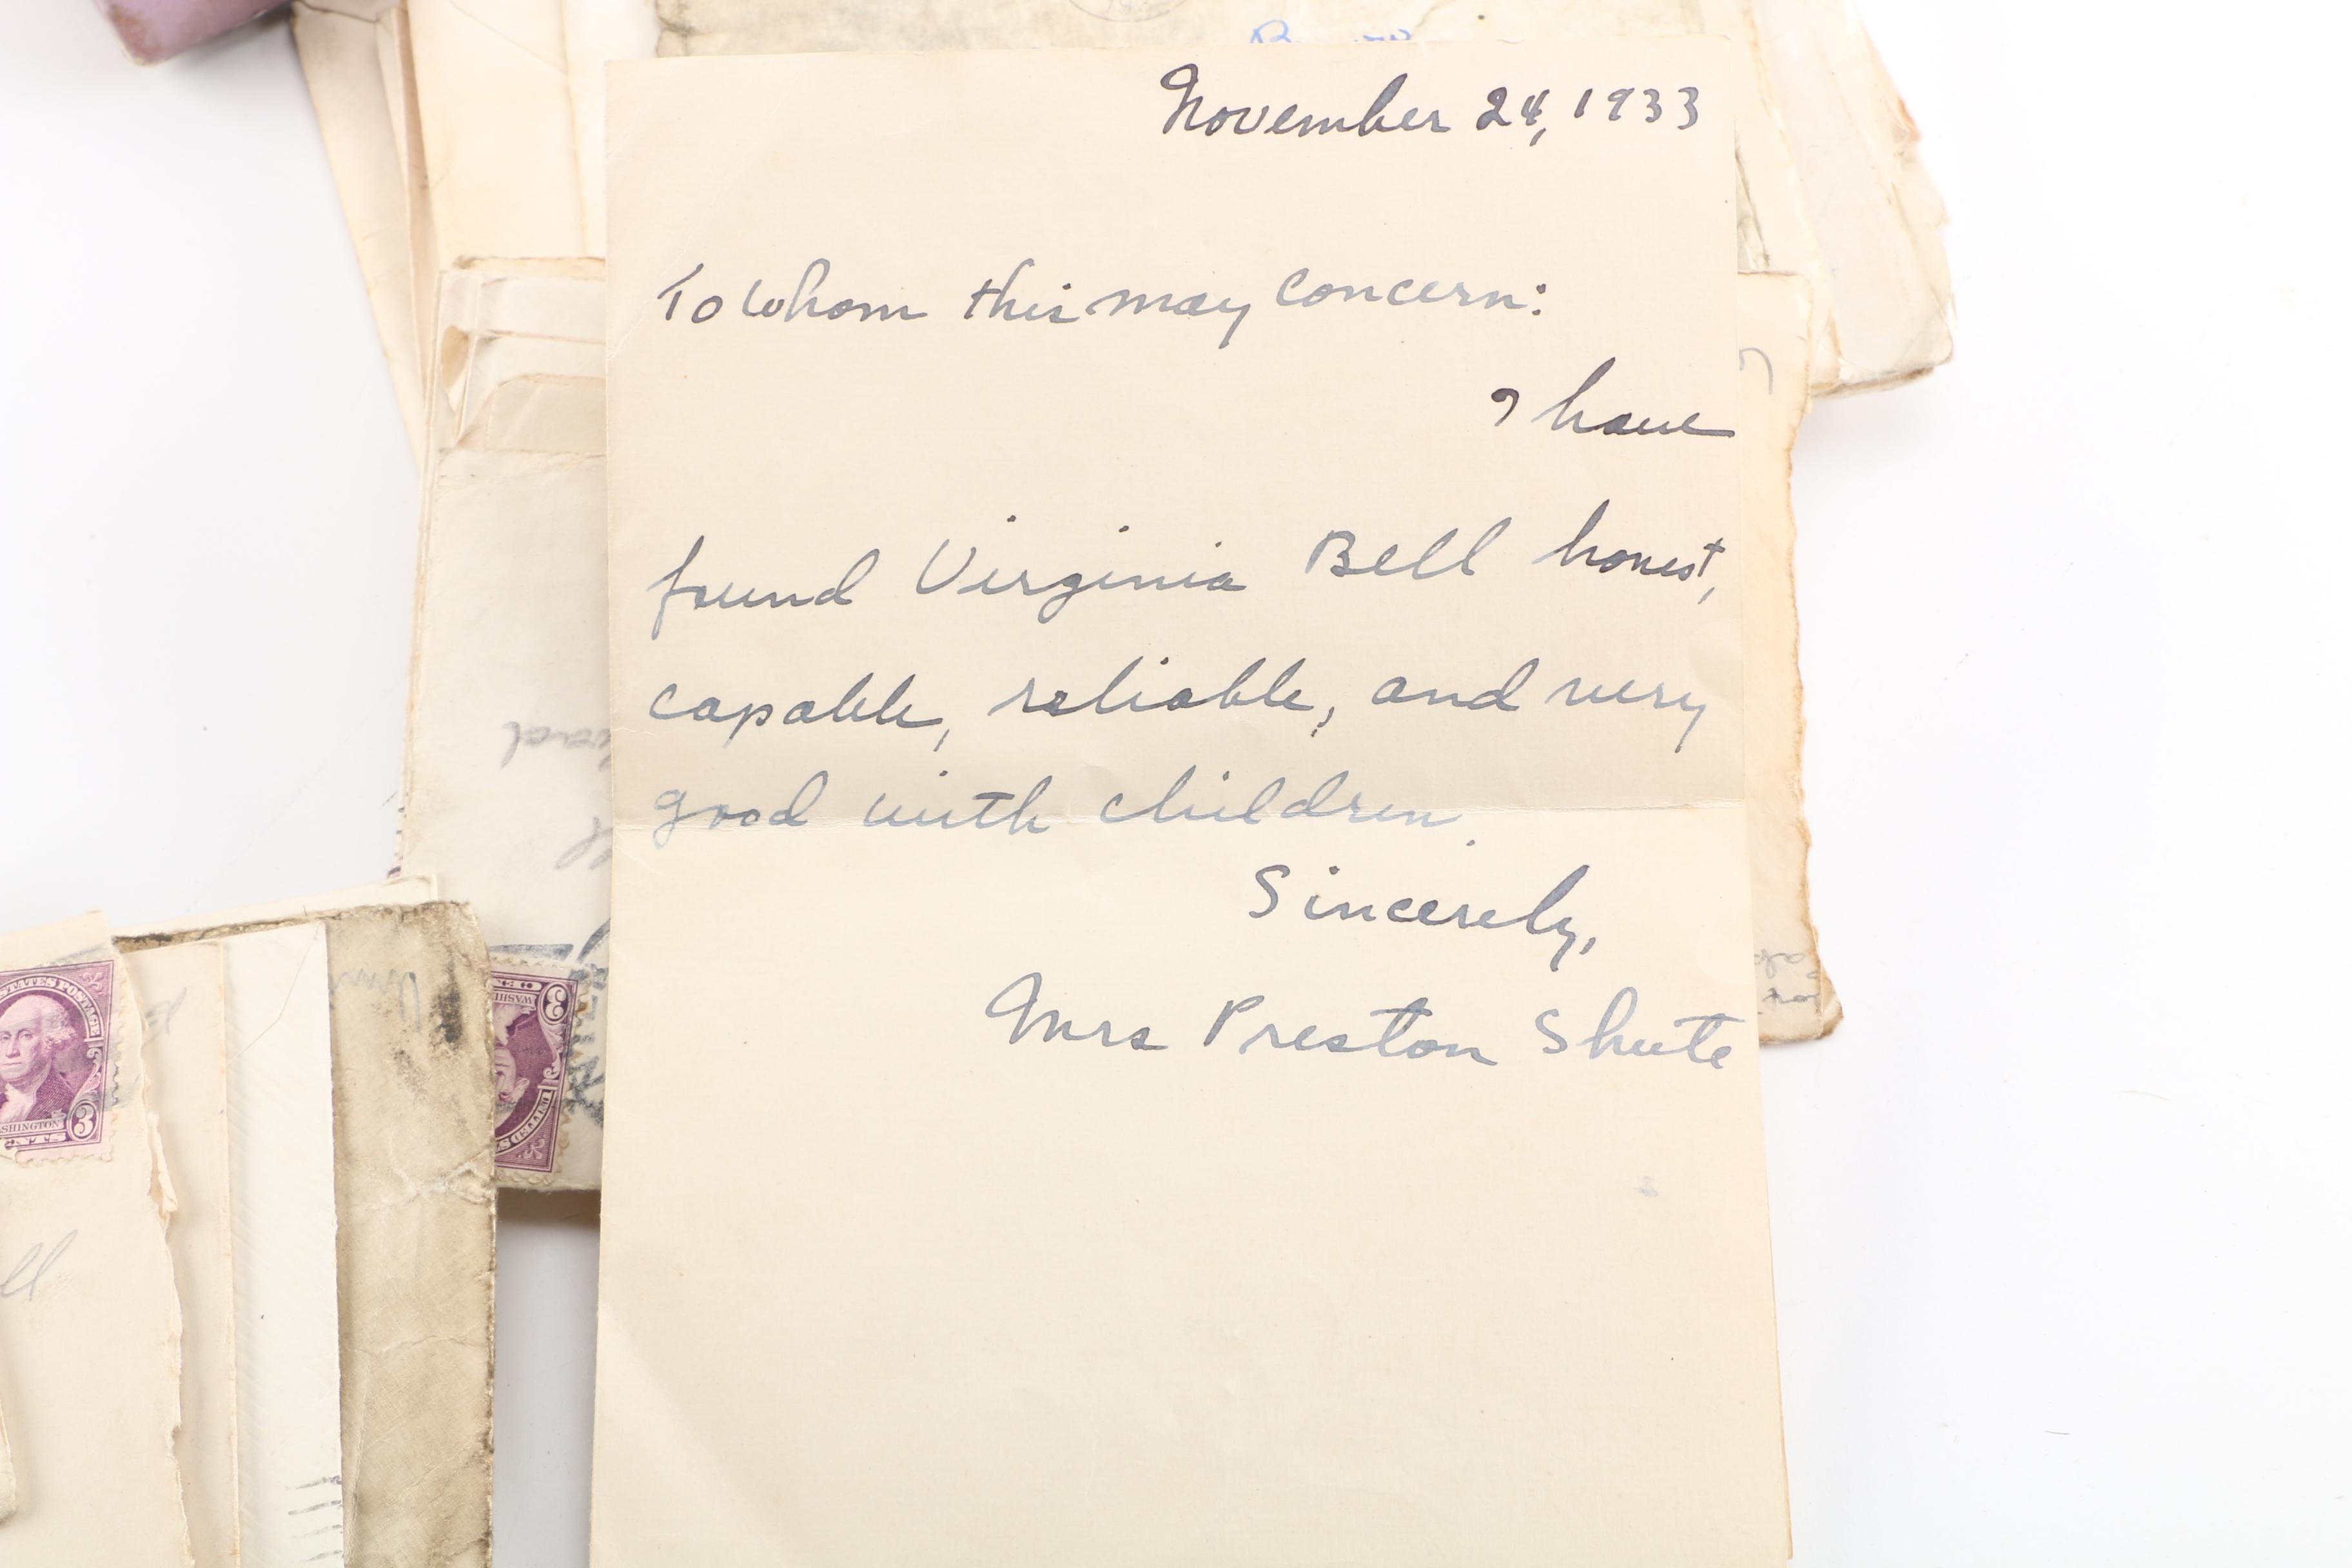 November 24, 1933
To whom this may concern:
I have
found Virginia Bell honest,
capable, reliable, and very
good with children.
Sincerely,
Mrs Preston Shute
STATES POSTAGE
3
SHINGTON
CENTS
3
WASHI
UNITED S
ll